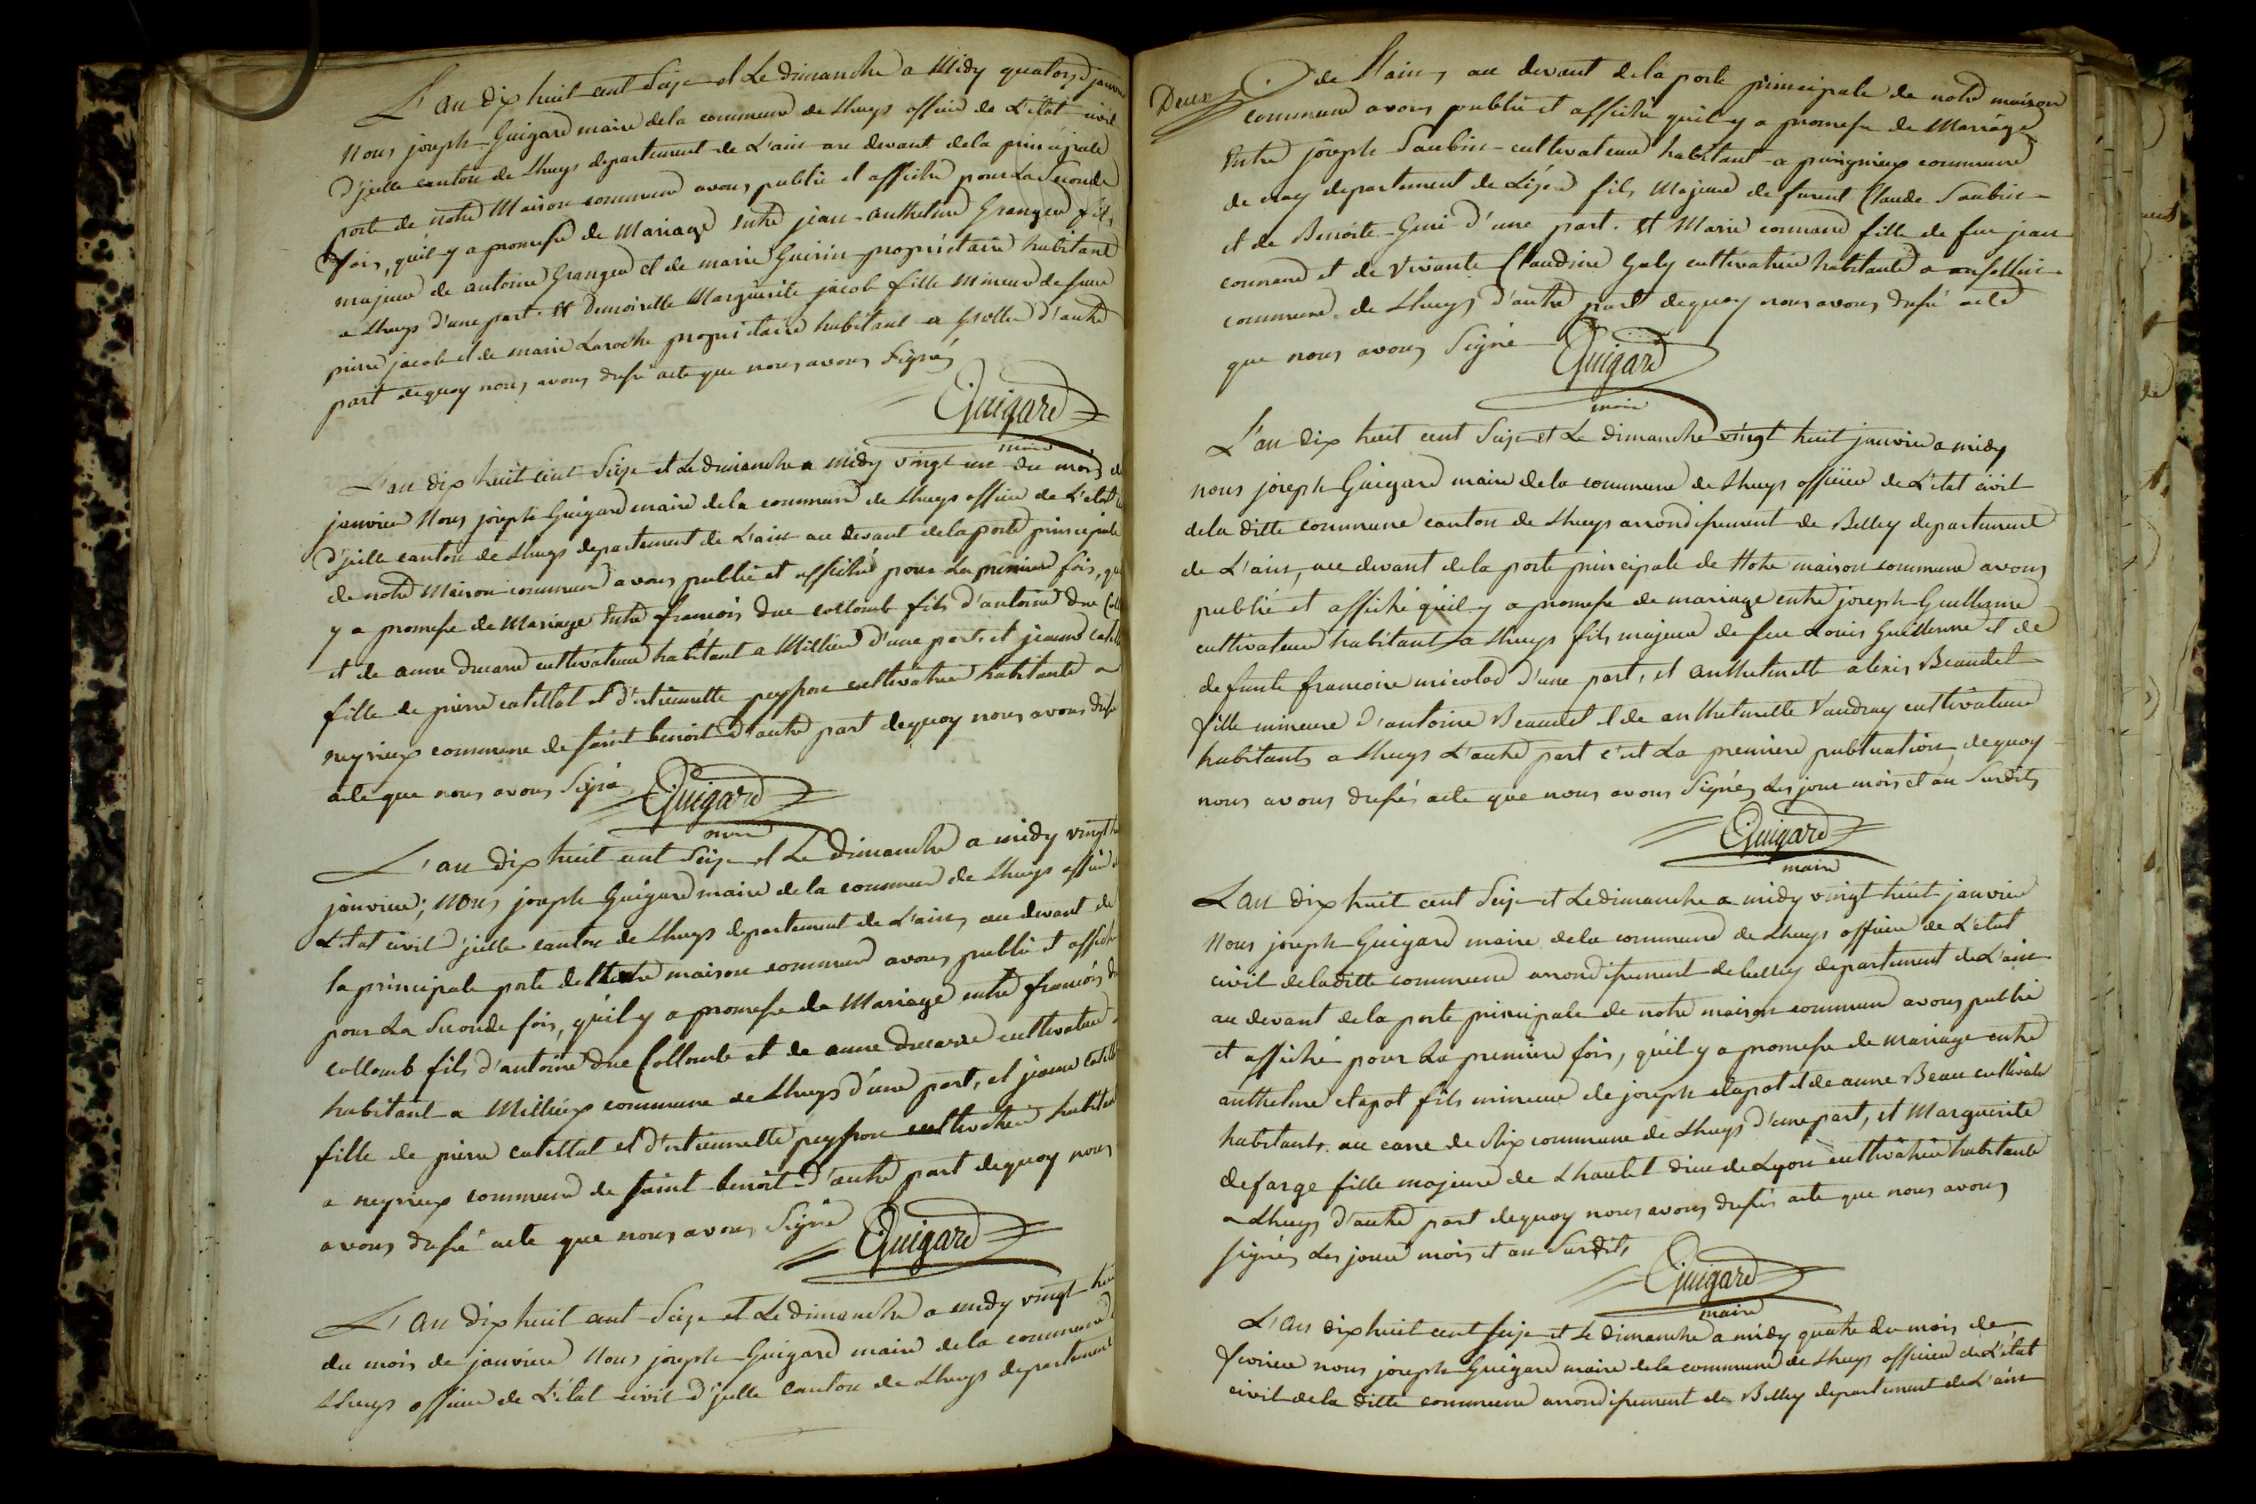 L'an dix huit cent Seize et Le dimanche a Midy quatorze janvier
Nous joseph Guigard maire dela commune de Lhuys officier de L'état civil
d'jcelle canton de Lhuys departement de L'ain au devant dela principale
porte de notre Maison commune avons publié et affiché pour La Seconde
fois, qu'il y a promesse de Mariage Entre jean-anthelme Granger fils
majeur de antoine Granger et de marie Guirin propriétaire habitant
a Lhuys d'une part. Et Demoiselle Marguerite jacob fille Mineure de feue
pierre jacob et de marie Laroche propriétaire habitant a d'autre
part dequoy nous avons dressé acte que nous avons Signés
Guigard
maire
L'an dix huit cent Seize et Le dimanche a midy vingt un du mois de
janvier Nous joseph Guigard maire dela commune de Lhuys officier de L'etat
d'jcelle canton de Lhuys departement de L'ain au devant dela porte principale
de notre Maison commune avons publié et affiché pour La premiere fois, qu
y a promesse de Mariage Entre francois duc collomb fils d'antoine Duc Coll
et de anne ducarre cultivateur habitant a Millieu d'une part, et jeanne catell
fille de pierre catellat et d'etiennette peysson cultivatrice habitante a
neyrieux commune de saint benoit d'autre part dequoy nous avons dressé
acte que nous avons Signé Guigard
maire
L'an dix huit cent Seize et Le dimanche a midy vingt
janvier; Nous joseph Guigard maire de la commune de Lhuys officier
L'etat civil d'jcelle canton de Lhuys departement de L'ain, au devant de
la principale porte de Notre maison commune avons publié et affiché
pour La Seconde fois, qu'il y a promesse de Mariage entre francois du
collomb fils d'antoine duc Collomb et de anne ducarre cultivateur
habitant a Millieux commune de Lhuys d'une part, et jeanne catell
fille de pierre catellat et d'etiennette peysson cultivatrice habitan
a neyrieux commune de saint benoit d'autre part dequoy nous
avons dressé acte que nous avons Signé Guigard
L'an dix huit cent Seize et Le dimanche a midy vingt hui
du mois de janvier Nous joseph Guigard maire dela commune
Lhuys officier de L'état civil d'jcelle canton de Lhuys departement
Deux
de L'ain, au devant dela porte principale de notre maison
commune avons publié et affiché qu'il y a promesse de Mariage
Entre joseph Saubin cultivateur habitant a commune
de departement de L'isere fils Majeur de furent Claude Saubin
et de Benoite d'une part. Et Marie connand fille de feu jean
connand et de vivante Claudine Galy cultivatrice habitante a
commune de Lhuys d'autre part dequoy nous avons dressé acte
que nous avons Signé Guigard
maire
L'an dix huit cent Seize et Le dimanche vingt huit janvier a midy
nous joseph Guigard maire dela commune de Lhuys officier de L'etat civil
dela ditte commune canton de Lhuys arrondissement de Belley departement
de L'ain, au devant dela porte principale de Notre maison commune avons
publié et affiché qu'il y a promesse de mariage entre joseph Guillerme
cultivateur habitant a Lhuys fils majeur de feu Louis Guillerme et de
defunte francoise nicolod d'une part, et anthelmette alexis Beaudet
fille mineure d'antoine Beaudet et de anthelmette Vaudray cultivateur
habitants a Lhuys L'autre part c'est La premiere publication dequoy
nous avons dressés acte que nous avons Signés Les jour mois et an Surdits
Guigard
maire
L'an dix huit cent Seize et Le dimanche a midy vingt huit janvier
Nous joseph Guigard maire dela commune de Lhuys officier de L'etat
civil dela ditte commune arrondissement de belley departement de L'ain
au devant dela porte principale de notre maison commune avons publié
et affiché pour La premiere fois, qu'il y a promesse de mariage entre
anthelme clapot fils mineur de joseph clapot et de anne Beau cultivateur
habitants au de Rix commune de Lhuys d'une part, et Marguerite
defarge fille majeure de Lhautel dieu de Lyon cultivatrice habitante
a Lhuys d'autre part dequoy nous avons dressés acte que nous avons
signés Les jour mois et an Surdits
Guigard
maire
L'an dix huit cent seize et Le dimanche a midy quatre du mois de
fevrier nous joseph Guigard maire dela commune de Lhuys officier de L'état
civil dela ditte commune arrondissement de Belley departement de L'ain